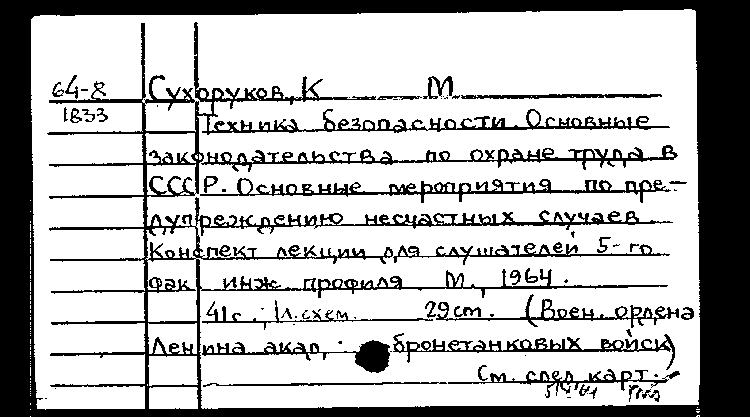 64-8 Сухоруков, К М
1833 Техника безопасности. Основные
законодательства по охране труда в
СССР. Основные мероприятия по пре-
дупреждению несчастных случаев.
Конспект лекции для слушателей 5-го
фак инж. профиля. М., 1964.
41 с., 1 л. схем. 29 ст. (Воен. ордена
Ленина акад. бронетанковых войск)
См. след карт.